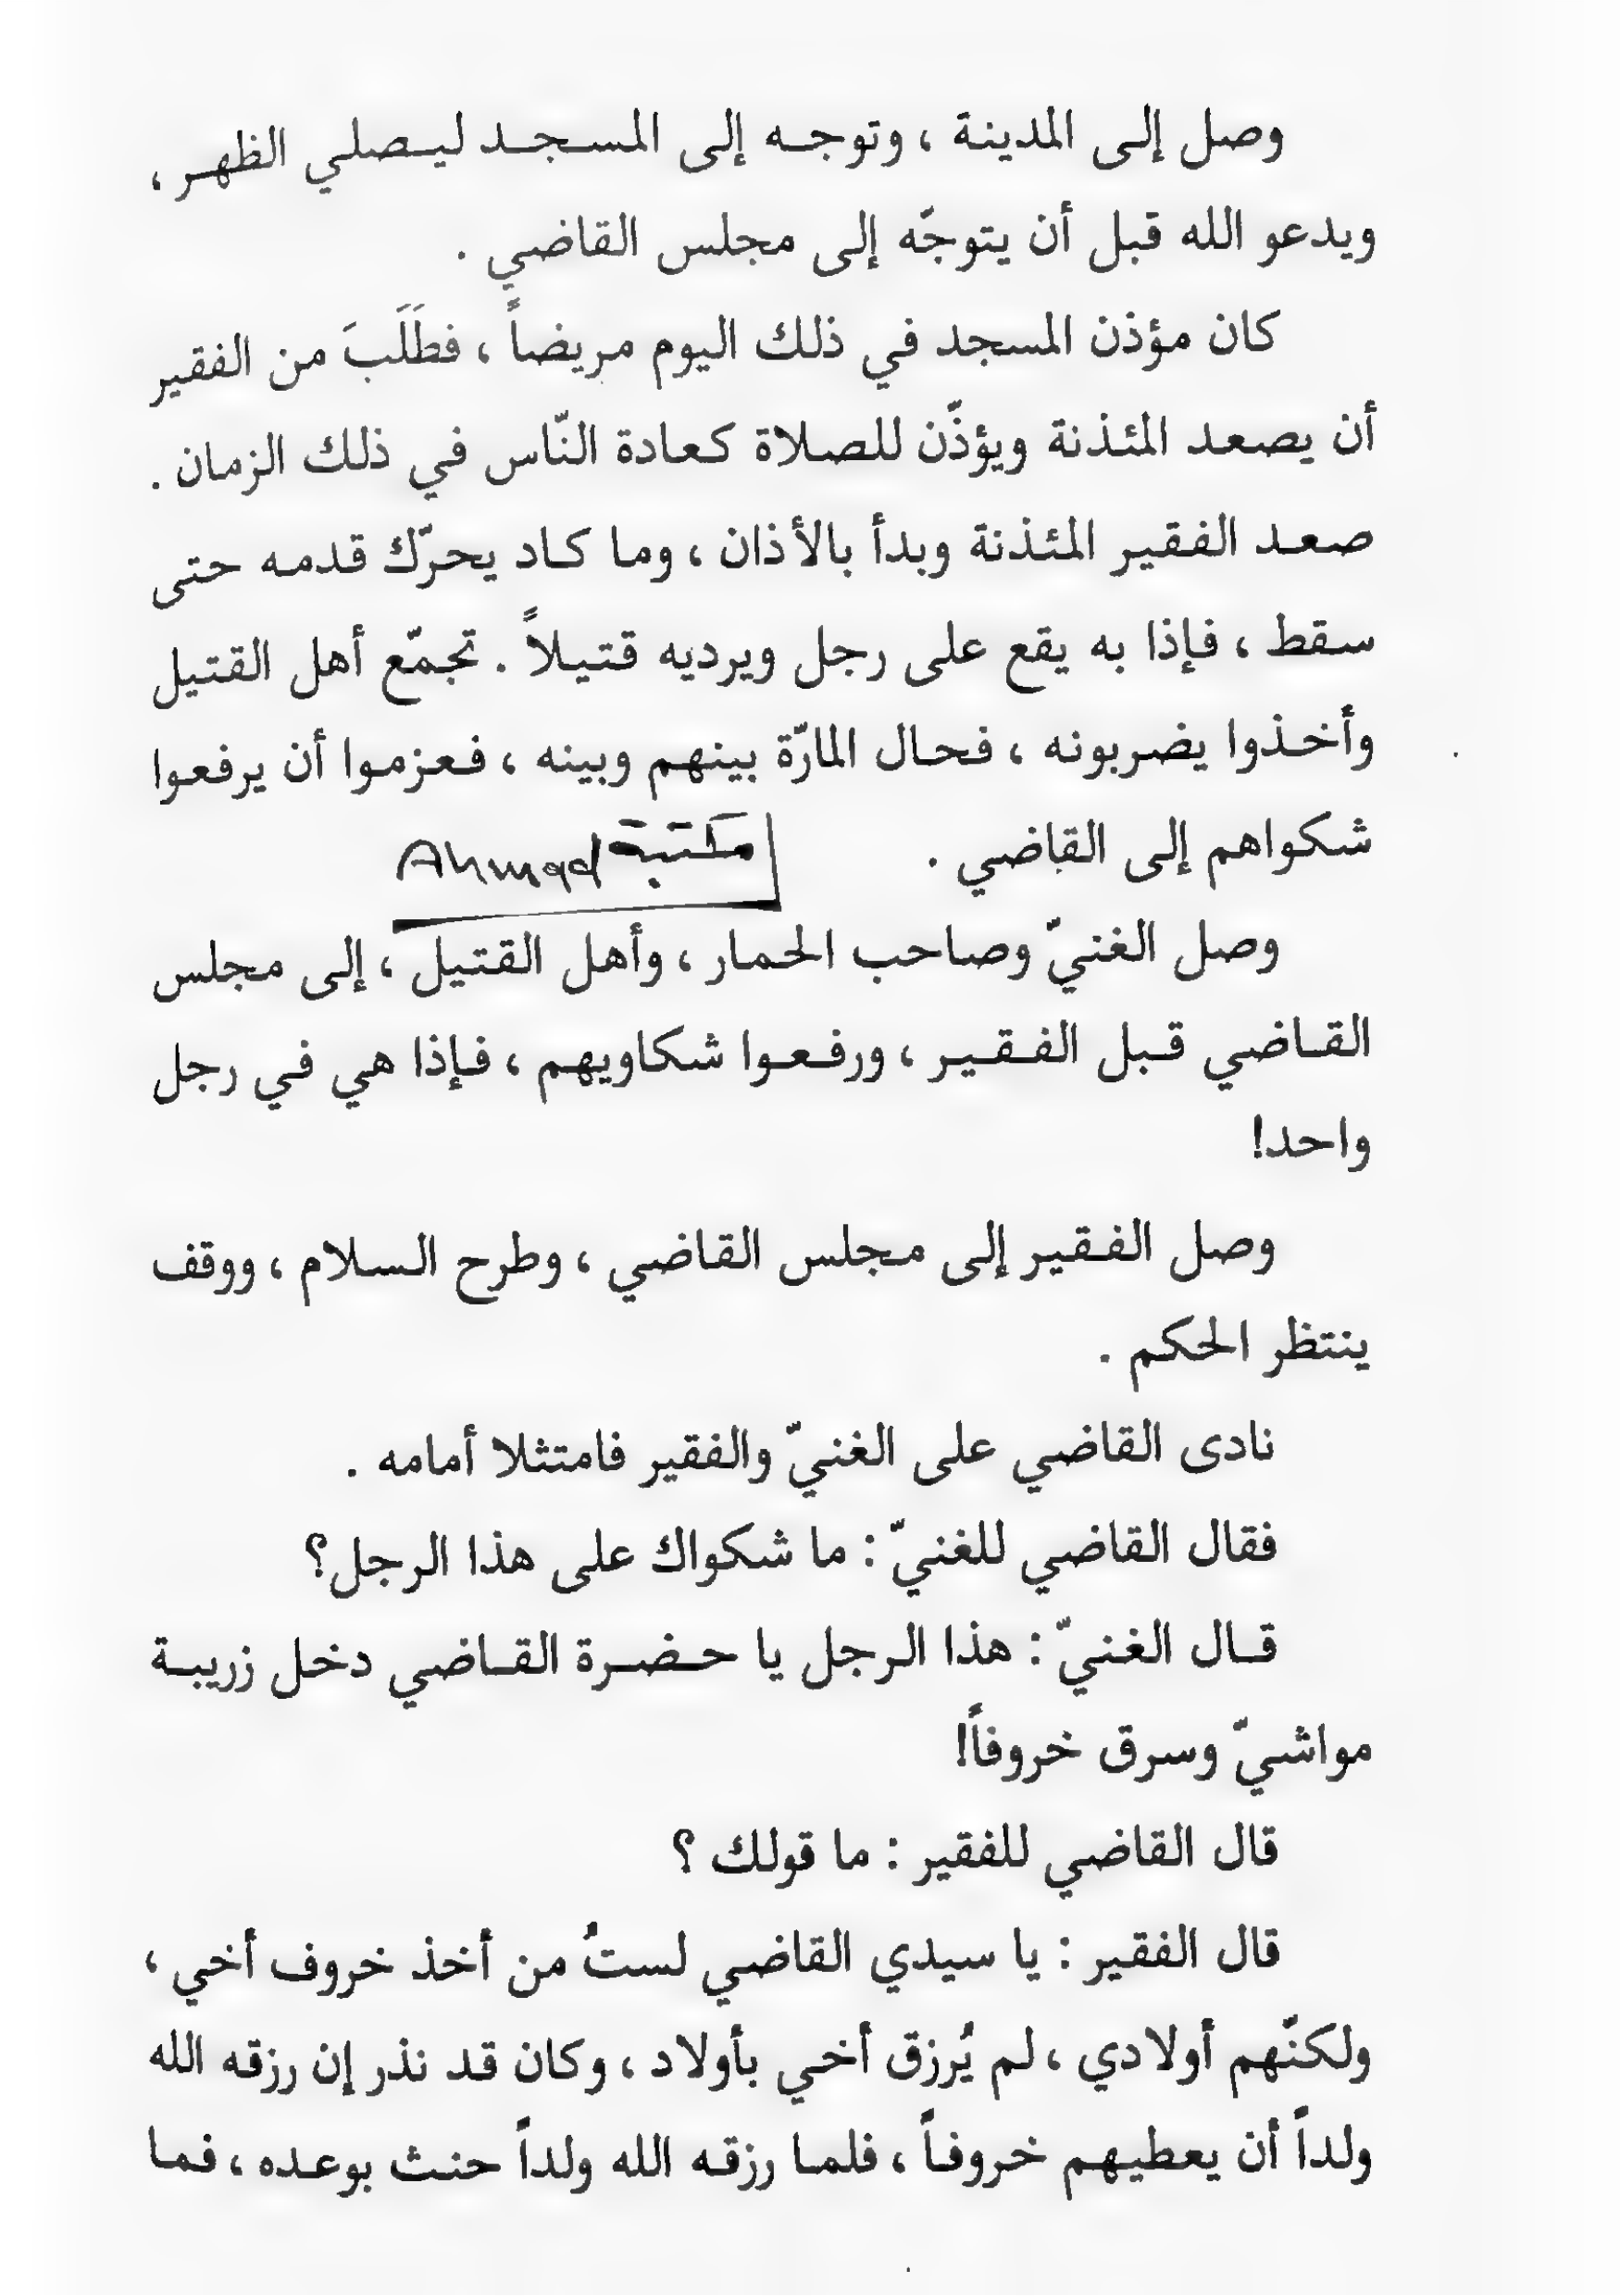 وصل إلى المدينة ، وتوجه إلى المسجد ليصلي الظهر ،
ويدعو الله قبل أن يتوجّه إلى مجلس القاضي .
كان مؤذن المسجد في ذلك اليوم مريضاً ، فطَلَبَ من الفقير
أن يصعد المئذنة ويؤذّن للصلاة كعادة النّاس في ذلك الزمان .
صعد الفقير المئذنة وبدأ بالأذان ، وما كاد يحرّك قدمه حتى
سقط ، فإذا به يقع على رجل ويرديه قتيلاً . تجمّع أهل القتيل
وأخذوا يضربونه ، فحال المارّة بينهم وبينه ، فعزموا أن يرفعوا
شكواهم إلى القاضي .
مكتبة Ahmad
وصل الغنيّ وصاحب الحمار ، وأهل القتيل ، إلى مجلس
القاضي قبل الفقير ، ورفعوا شكاويهم ، فإذا هي في رجل
واحد!
وصل الفقير إلى مجلس القاضي ، وطرح السلام ، ووقف
ينتظر الحكم .
نادى القاضي على الغنيّ والفقير فامتثلا أمامه .
فقال القاضي للغنيّ : ما شكواك على هذا الرجل؟
قال الغنيّ : هذا الرجل يا حضرة القاضي دخل زريبة
مواشيّ وسرق خروفاً!
قال القاضي للفقير : ما قولك ؟
قال الفقير : يا سيدي القاضي لستُ من أخذ خروف أخي ،
ولكنّهم أولادي ، لم يُرزق أخي بأولاد ، وكان قد نذر إن رزقه الله
ولداً أن يعطيهم خروفاً ، فلما رزقه الله ولداً حنث بوعده ، فما